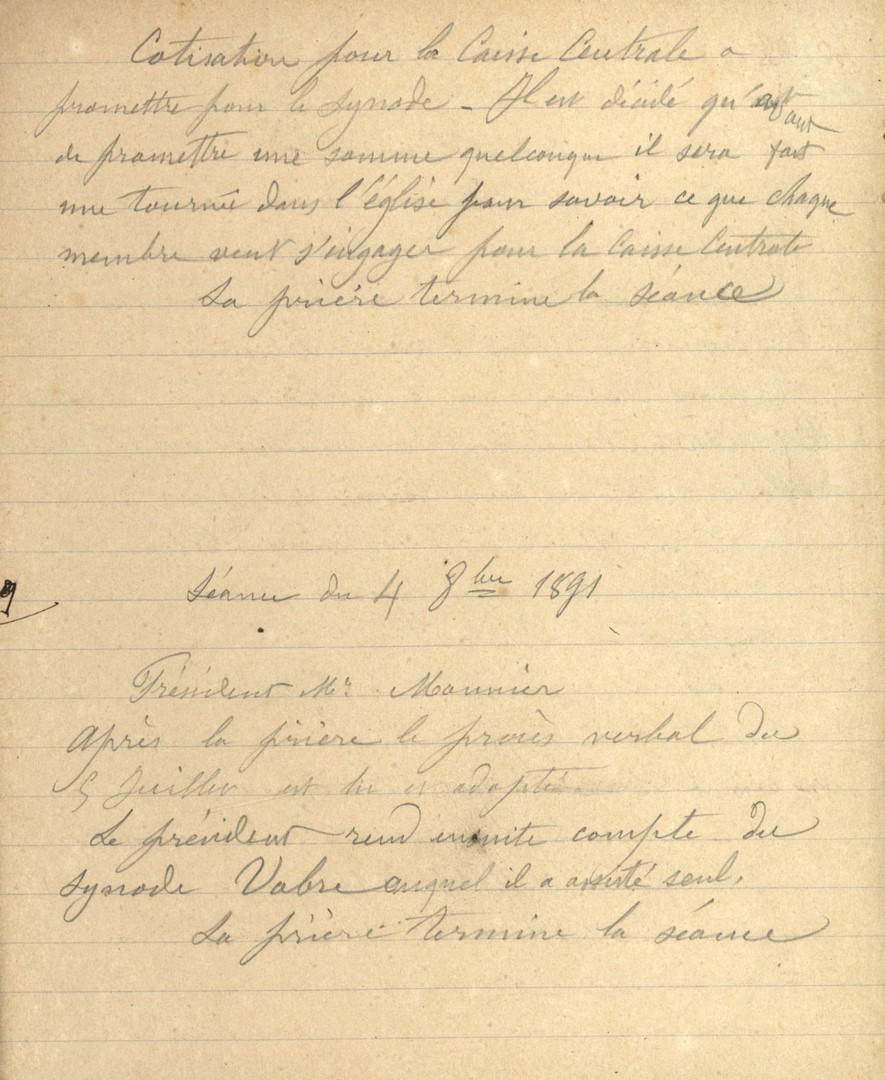 Cotisation pour la Caisse Centrale a
promettre pour le synode - Il est décidé qu'avant
de promettre une somme quelconque il sera fait
une tournée dans l'église pour savoir ce que chaque
membre veut s'engager pour la Caisse Centrale
La prière termine la séance
Séance du 4 8bre 1891
Président Mr. Mounier
Après la prière le procès verbal du
5 Juillet est lu et adopté.
Le président rend ensuite compte du
synode Vabre auquel il a assisté seul.
La prière termine la séance